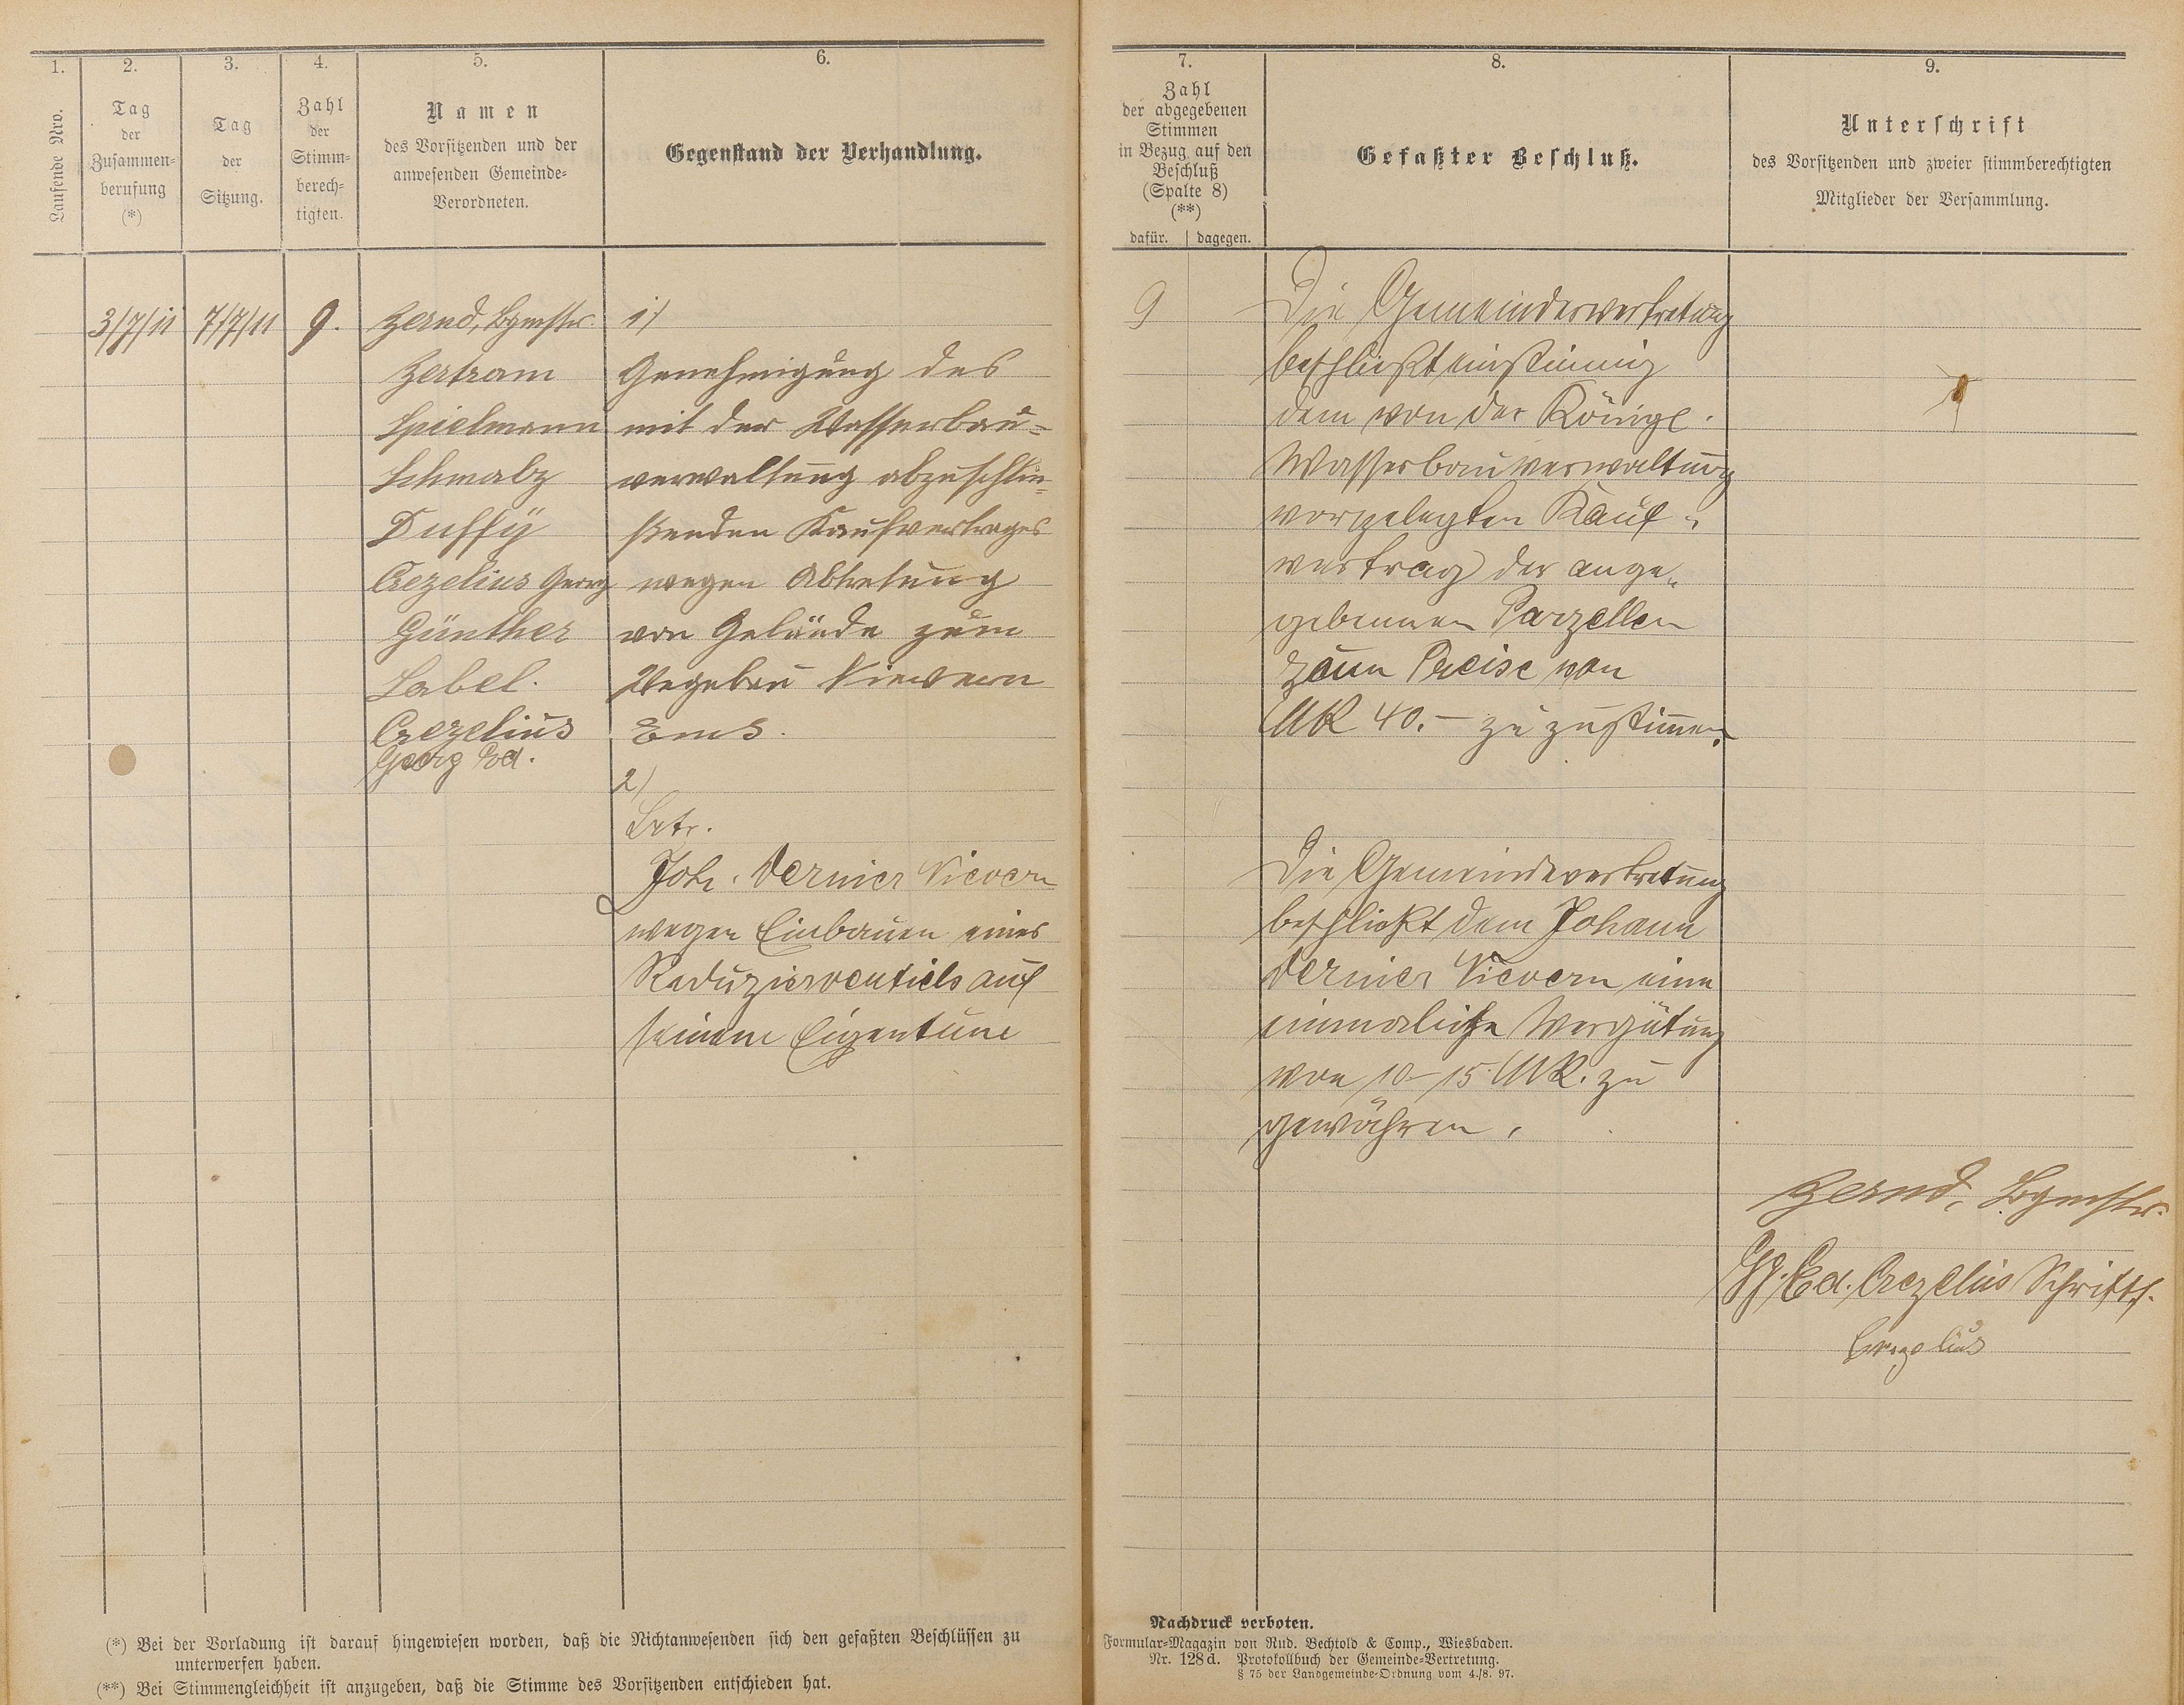 1.
Laufende Nro.
2.
Tag
der
Zusammen=
berufung
(*)
3.
Tag
der
Sitzung.
4.
Zahl
der
Stimm=
berech=
tigten.
5.
Namen
des Vorsitzenden und der
anwesenden Gemeinde=
Verordneten.
6.
Gegenstand der Verhandlung.
3/7/11
7/7/11
9.
Zernd, Bgmstr.
Bertram
Spielmann
Schmalz
Duffÿ
Crezelius Georg
Günther
Label.
Crezelius
Georg Ed.
1)
Genehmigung des
mit der Wasserbau=
verwaltung abzuschlie=
ßenden Kaufvertrages
wegen Abtretung
von Gelände zum
Wegebau Nievern
Ems.
2)
Betr.
Joh. Vernier Nievern
wegen Einbauen eines
Reduzierventiels auf
seinem Eigentume
(*) Bei der Vorladung ist darauf hingewiesen worden, daß die Nichtanwesenden sich den gefaßten Beschlüssen zu
unterwerfen haben.
(**) Bei Stimmengleichheit ist anzugeben, daß die Stimme des Vorsitzenden entschieden hat.
7.
Zahl
der abgegebenen
Stimmen
in Bezug auf den
Beschluß
(Spalte 8)
(**)
dafür. | dagegen.
8.
Gefaßter Beschluß.
9.
Unterschrift
des Vorsitzenden und zweier stimmberechtigten
Mitglieder der Versammlung.
9
Die Gemeindevertretung
beschließt einstimmig
dem von der Königl.
Wasserbauverwaltung
vorgelegten Kauf=
vertrag der ange=
gebenen Parzellen
zum Preise von
MK 40.- zu zustimmen.
Die Gemeindevertretung
beschließt dem Johann
Vernier Nievern eine
einmalige Vergütung
von 10-15 MK. zu
gewähren.
Zernd, Bgmstr.
Gg. Ed. Crezelius Schriftf.
Crezelius
Nachdruck verboten.
Formular=Magazin von Rud. Bechtold & Comp., Wiesbaden.
Nr. 128 d. Protokollbuch der Gemeinde=Vertretung.
§ 75 der Landgemeinde=Ordnung vom 4./8. 97.